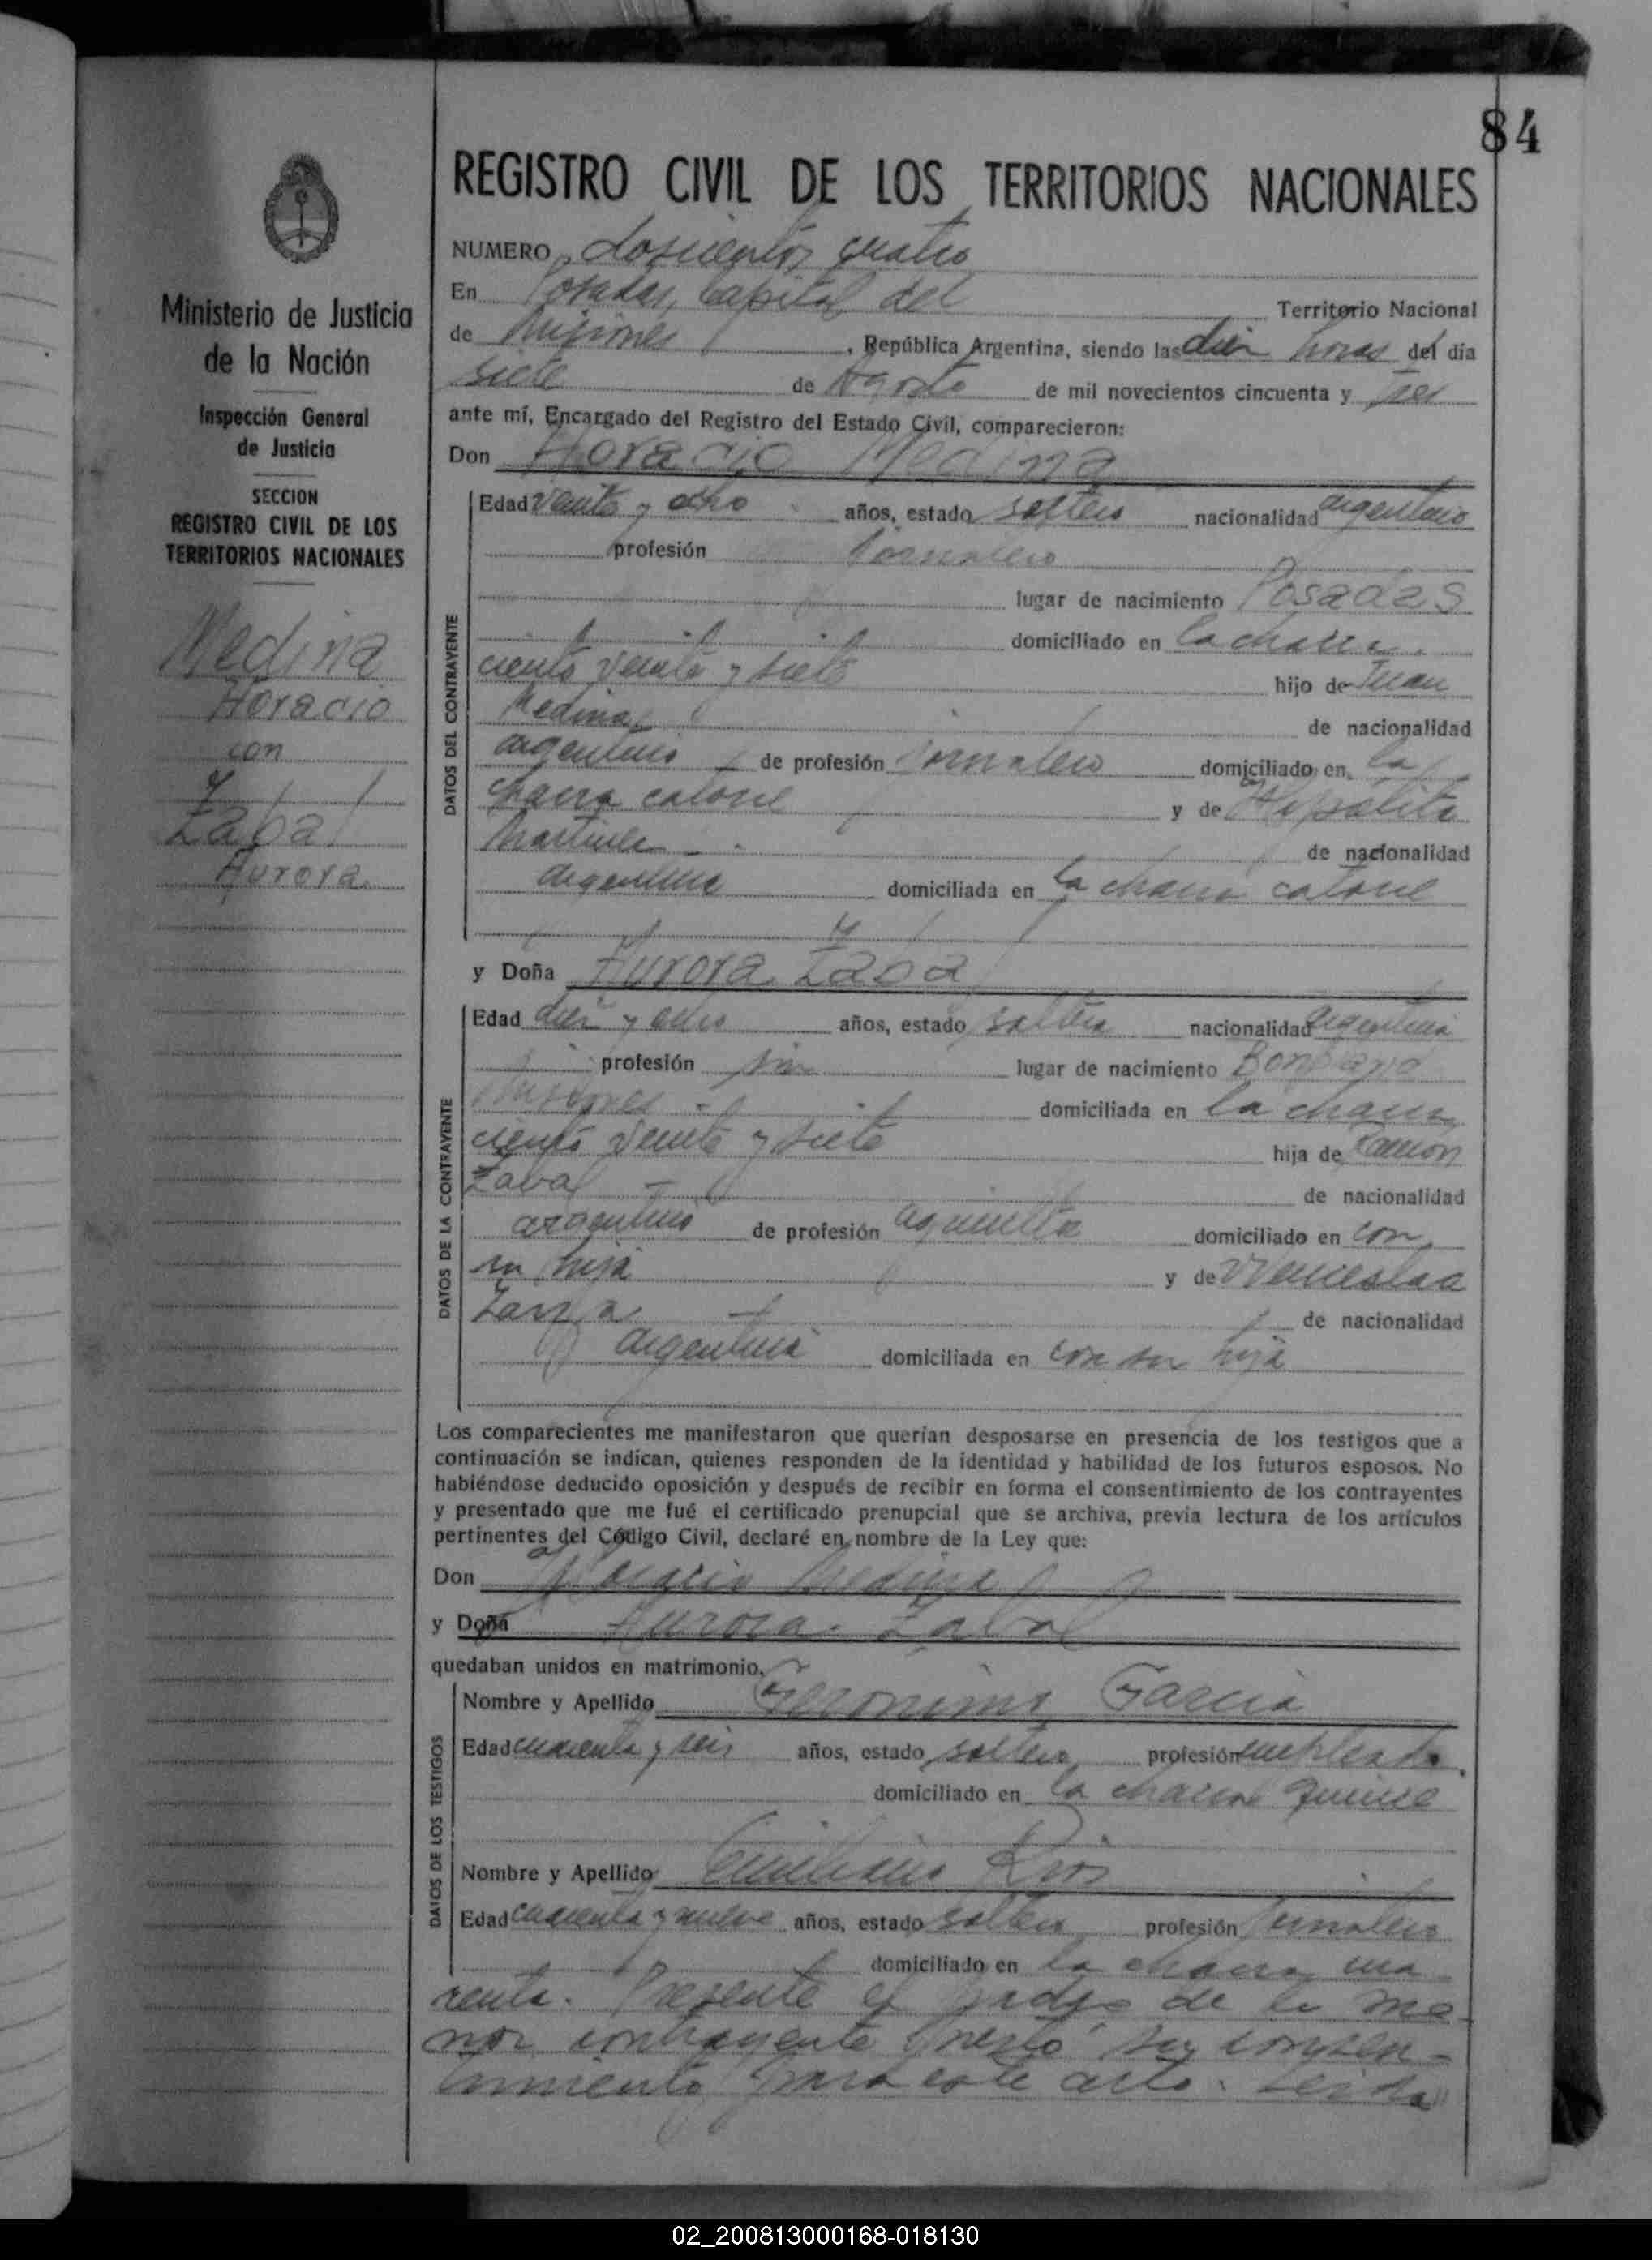 84
REGISTRO CIVIL DE LOS TERRITORIOS NACIONALES
Ministerio de Justicia
de la Nación
Inspección General
de Justicia
SECCION
REGISTRO CIVIL DE LOS
TERRITORIOS NACIONALES
Medina
Horacio
con
Zabal
Aurora
NUMERO doscientos cuatro
En Posadas, Capital del Territorio Nacional
de Misiones, República Argentina, siendo las diez horas del día
siete de Agosto de mil novecientos cincuenta y tres
ante mí, Encargado del Registro del Estado Civil, comparecieron:
Don Horacio Medina
DATOS DEL CONTRAYENTE
Edad veinte y ocho años, estado soltero nacionalidad argentino
profesión Jornalero
lugar de nacimiento Posadas
domiciliado en la chacra
ciento veinte y siete hijo de Juan
Medina de nacionalidad
argentino de profesión jornalero domiciliado en la
chacra catorce y de Hipolita
Martinez de nacionalidad
argentina domiciliada en la chacra catorce
y Doña Aurora Zabal
DATOS DE LA CONTRAYENTE
Edad diez y ocho años, estado soltera nacionalidad argentina
profesión sin lugar de nacimiento Bonpland
Misiones domiciliada en la chacra
ciento veinte y siete hija de Ramón
Zabal de nacionalidad
argentino de profesión domiciliado en con
su hija y de
de nacionalidad
argentina domiciliada en con su hija
Los comparecientes me manifestaron que querían desposarse en presencia de los testigos que a
continuación se indican, quienes responden de la identidad y habilidad de los futuros esposos. No
habiéndose deducido oposición y después de recibir en forma el consentimiento de los contrayentes
y presentado que me fué el certificado prenupcial que se archiva, previa lectura de los artículos
pertinentes del Código Civil, declaré en nombre de la Ley que:
Don Horacio Medina
y Doña Aurora Zabal
quedaban unidos en matrimonio.
DATOS DE LOS TESTIGOS
Nombre y Apellido Geronimo Garcia
Edad cuarenta y seis años, estado soltero profesión empleado
domiciliado en la chacra quince
Nombre y Apellido Emiliano Rios
Edad cuarenta y nueve años, estado soltero profesión jornalero
domiciliado en la chacra cua-
renta. Presente el padre de la me-
nor contrayente prestó su consen-
timiento para este acto. Leida
02_200813000168-018130